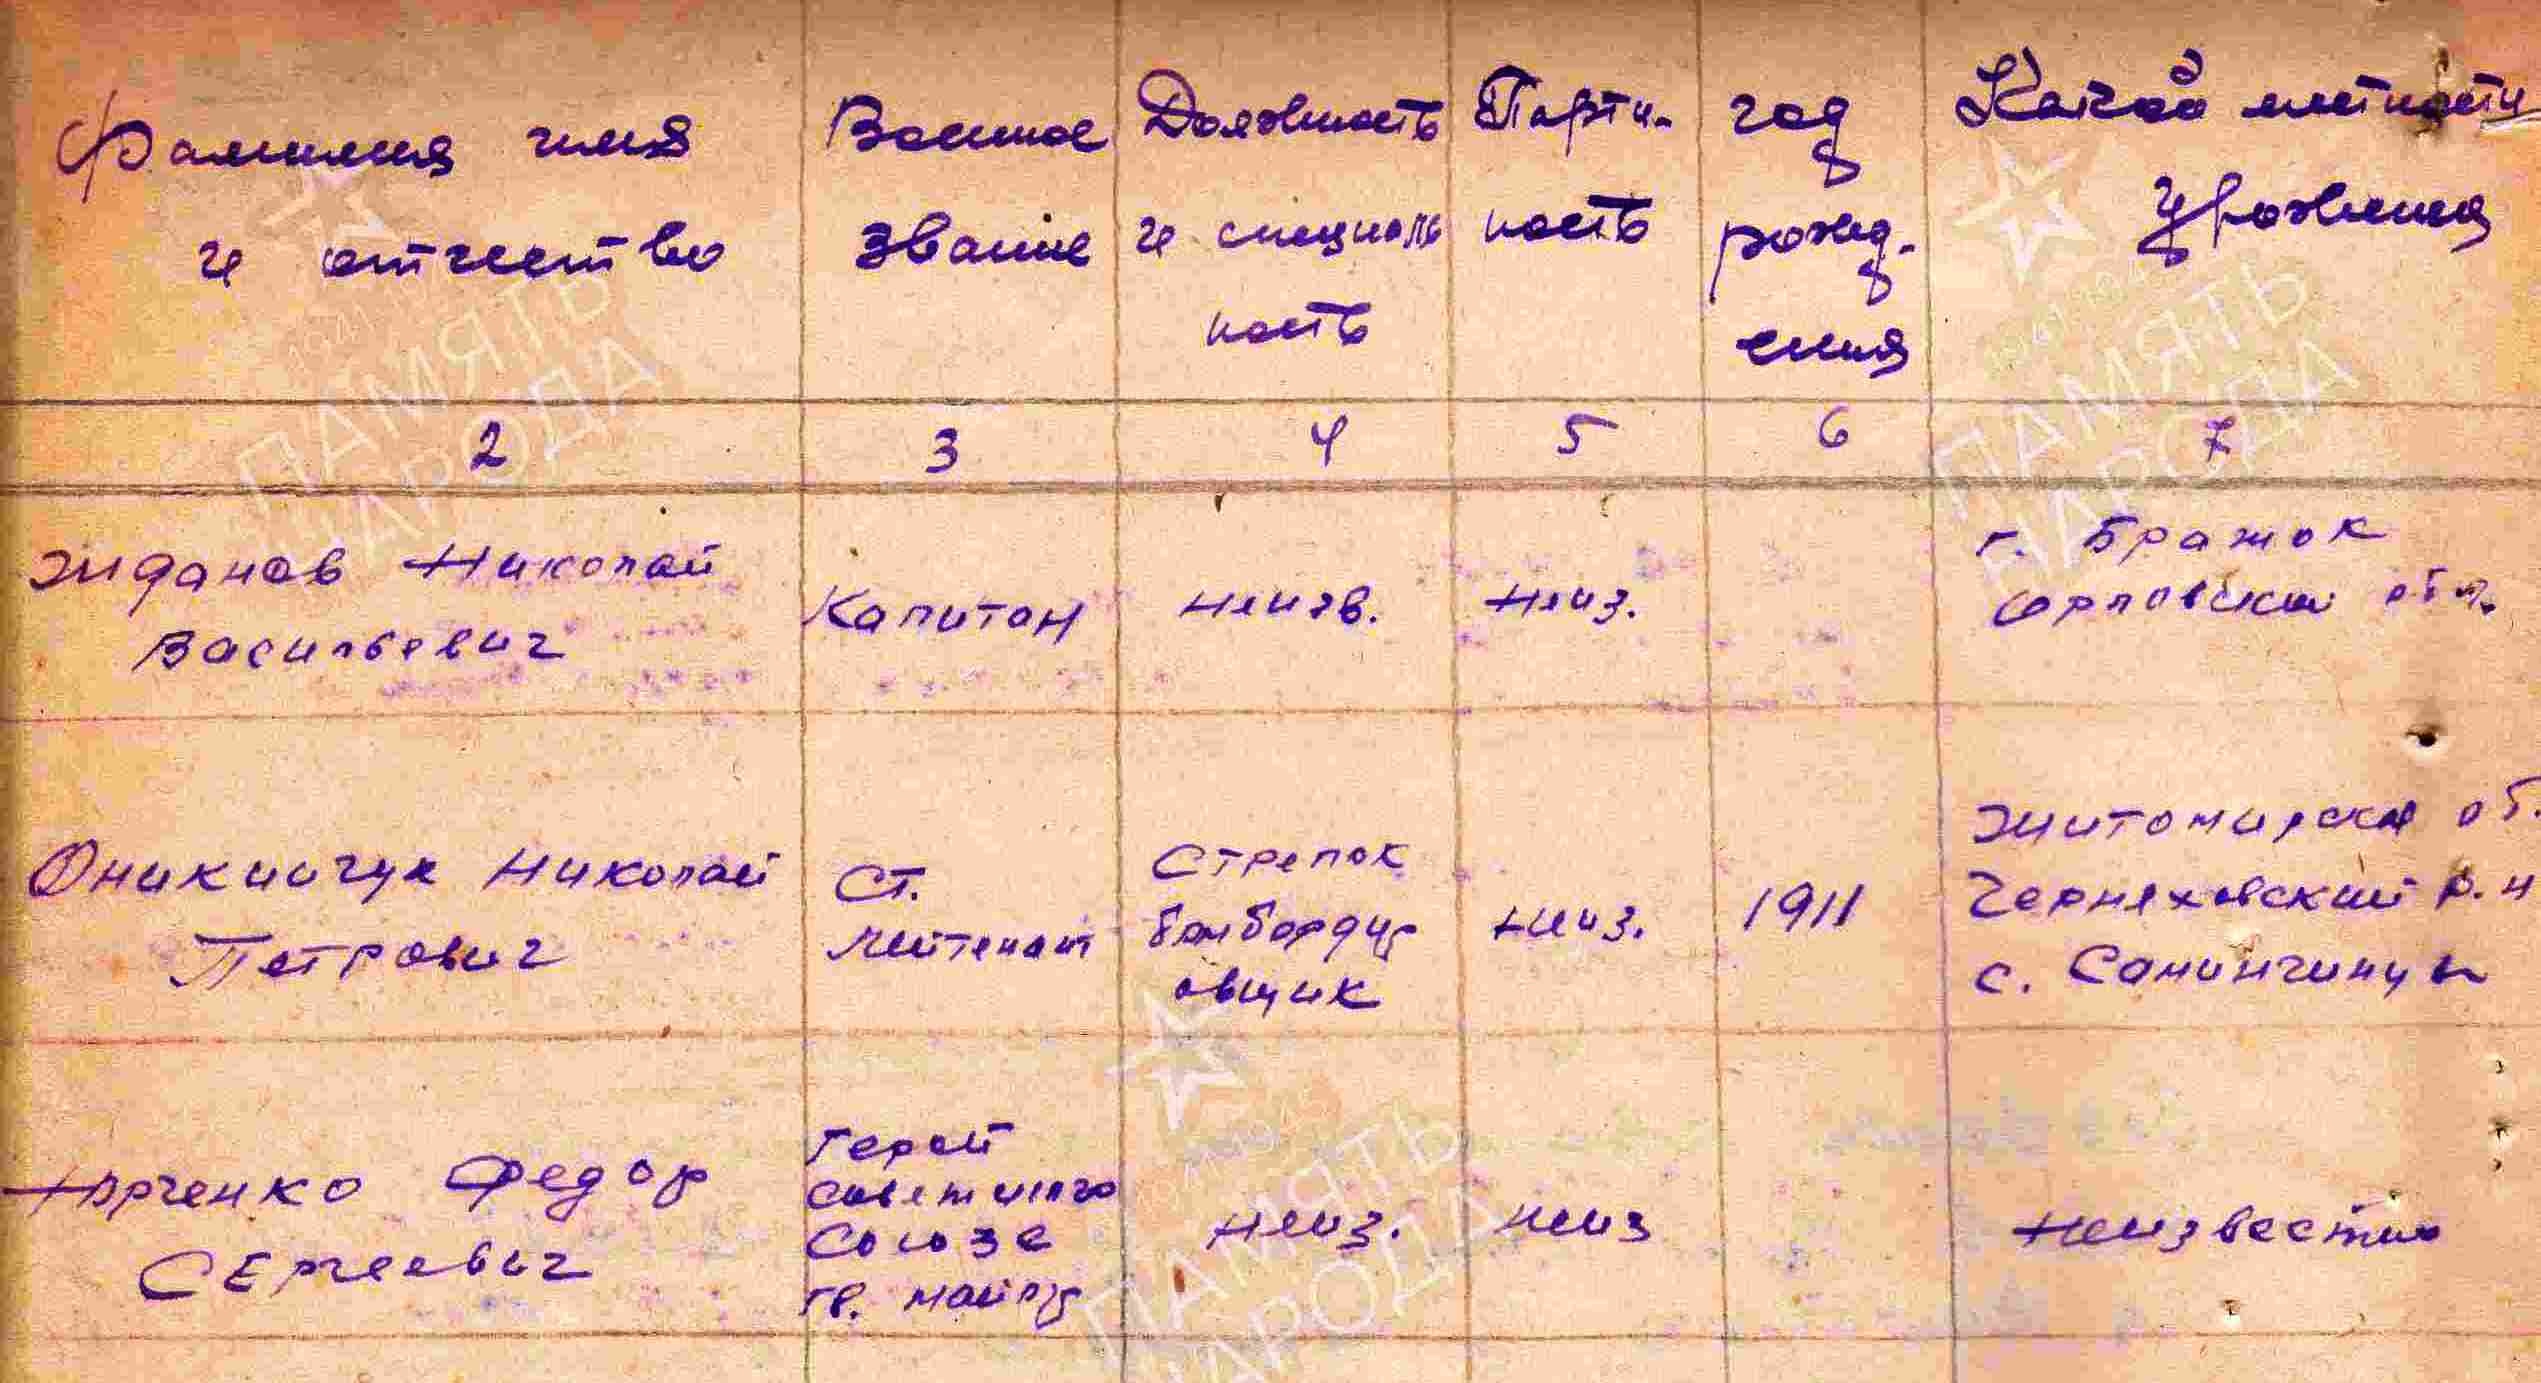 Фамилия имя
и отчество
Военное
звание
Должность
и специаль
ность
Парти-
ность
год
рожд-
ения
Какой местности
уроженец
2
3
4
5
6
7
Жданов Николай
Васильевич
Капитан
неизв.
неиз.
г. Бражок
Орловской обл.
Оникийчук Николай
Петрович
Ст.
лейтенант
Стрелок
бомбардир
овщик
неиз.
1911
Житомирская об.
Черняховский р.н
с.
Ярченко Федор
Сергеевич
Герой
советского
Союза
гв. майор
неиз.
неиз
неизвестно
ПАМЯТЬ
НАРОДА
ПАМЯТЬ
НАРОДА
ПАМЯТЬ
НАРОДА